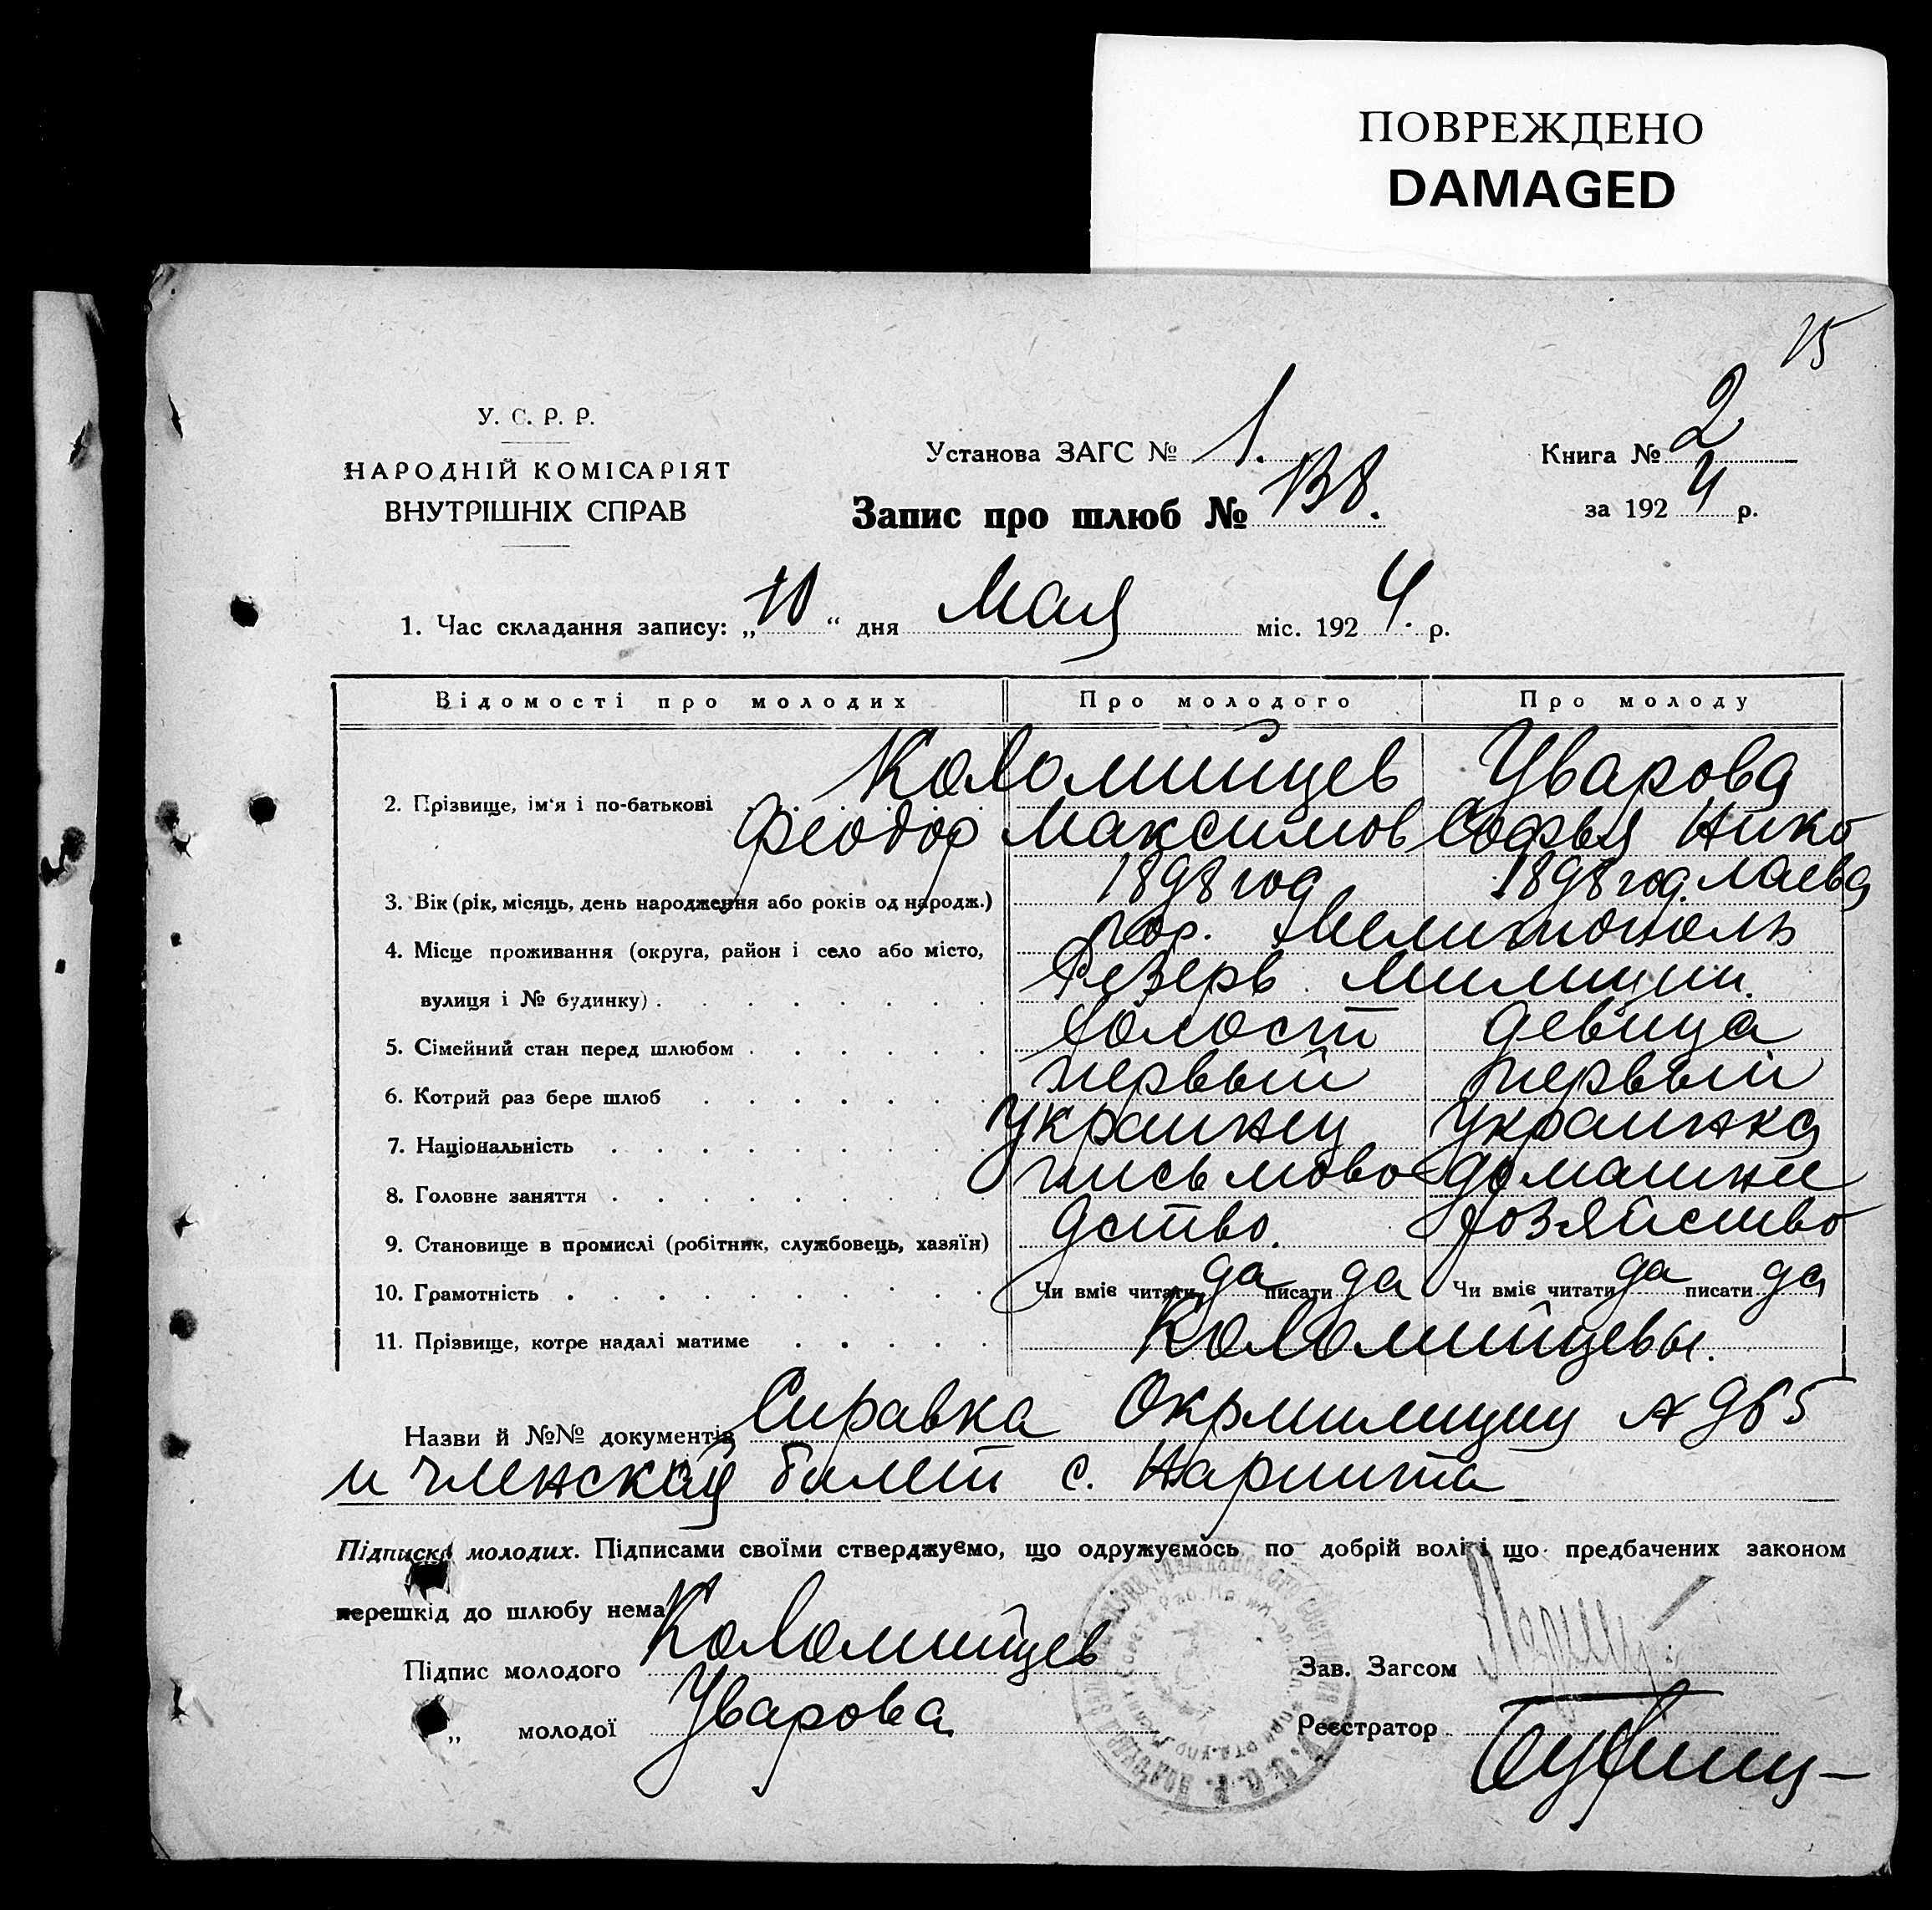 ПОВРЕЖДЕНО
DAMAGED
15
У. С. Р. Р.
НАРОДНІЙ КОМІСАРІЯТ
ВНУТРІШНІХ СПРАВ
Установа ЗАГС № 1.
Книга № 2
Запис про шлюб № 138.
за 1924 р.
1. Час складання запису: „10“ дня Мая міс. 1924. р.
Відомості про молодих Про молодого Про молоду
Коломийцев Уварова
2. Прізвище, ім'я і по-батькові Феодор Максимов Софья Нико
лаева
3. Вік (рік, місяць, день народження або років од народж.) 1898 год 1898 год.
4. Місце проживання (округа, район і село або місто, гор. Мелитополь
вулиця і № будинку) Резерв милиции.
5. Сімейний стан перед шлюбом холост девица
6. Котрий раз бере шлюб первый первый
7. Національність Украинец Украинка
8. Головне заняття письмово домашнее
9. Становище в промислі (робітник, службовець, хазяїн) дство. хозяйство
10. Грамотність Чи вміє читати да писати да Чи вміє читати да писати да
11. Прізвище, котре надалі матиме Коломийцевы.
Назви й №№ документів Справка Окрмилиции № 965
и членский билет с. Нарпита
Підписка молодих. Підписами своїми стверджуємо, що одружуємось по добрій волі і що предбачених законом
перешкід до шлюбу нема
Підпис молодого Коломийцев
Зав. Загсом
„ молодої Уварова
Реєстратор